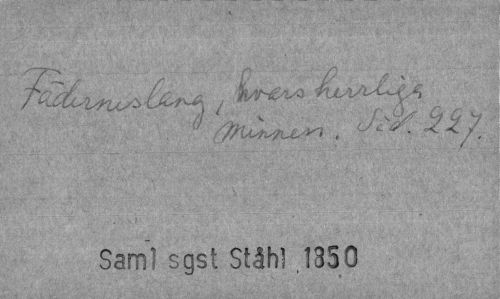 Fäderneslang, hvars herrliga
minnen. Sid. 227.
Saml sgst Ståhl 1850